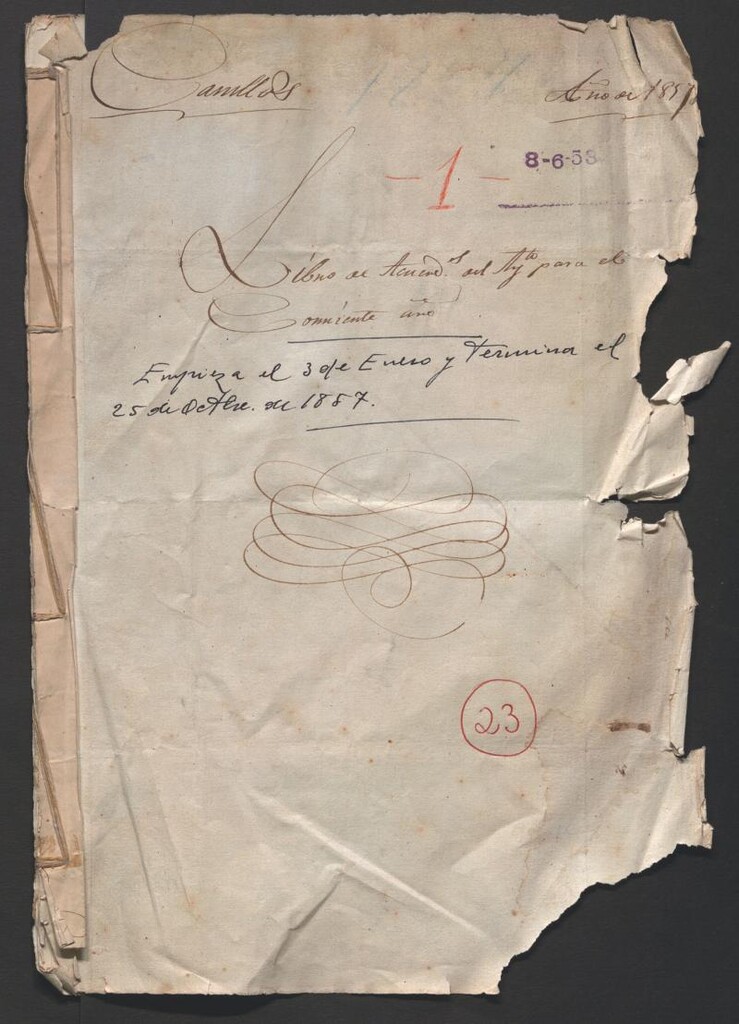 Canillas
Año de 1857
- 1 -
8-6-58
Libro de Acuerd.os del Ayto para el
Corriente año
Empieza el 3 de Enero y Termina el
25 de Octbre. de 1857.
23